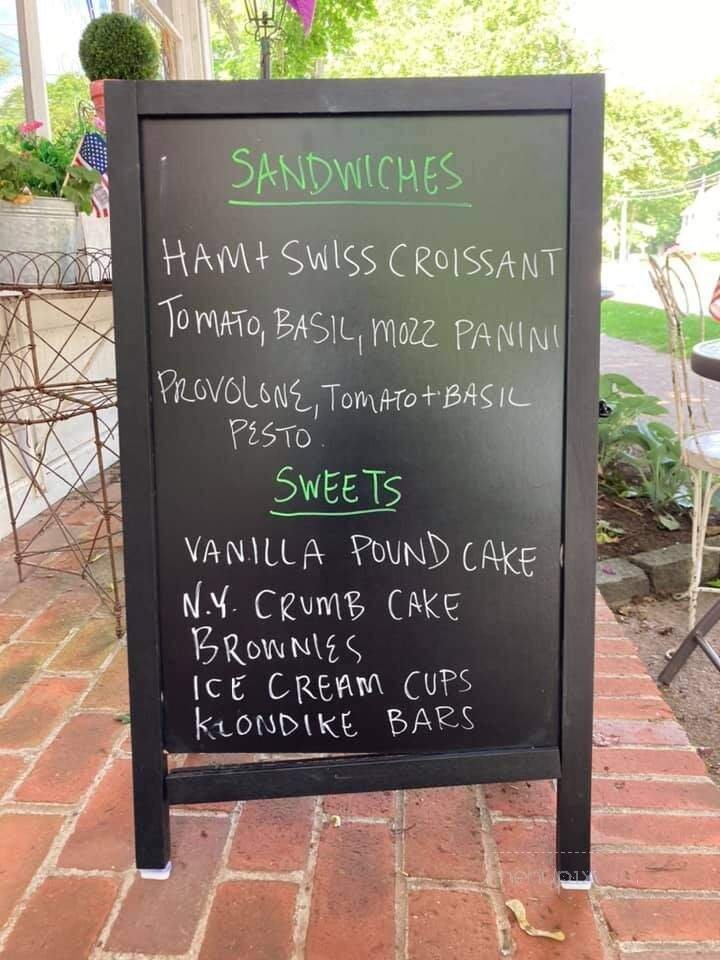 SANDWICHES
HAM + SWISS CROISSANT
TOMATO, BASIL, MOZZ PANINI
PROVOLONE, TOMATO + BASIL
PESTO.
SWEETS
VANILLA POUND CAKE
N.Y. CRUMB CAKE
BROWNIES
ICE CREAM CUPS
KLONDIKE BARS
menupix